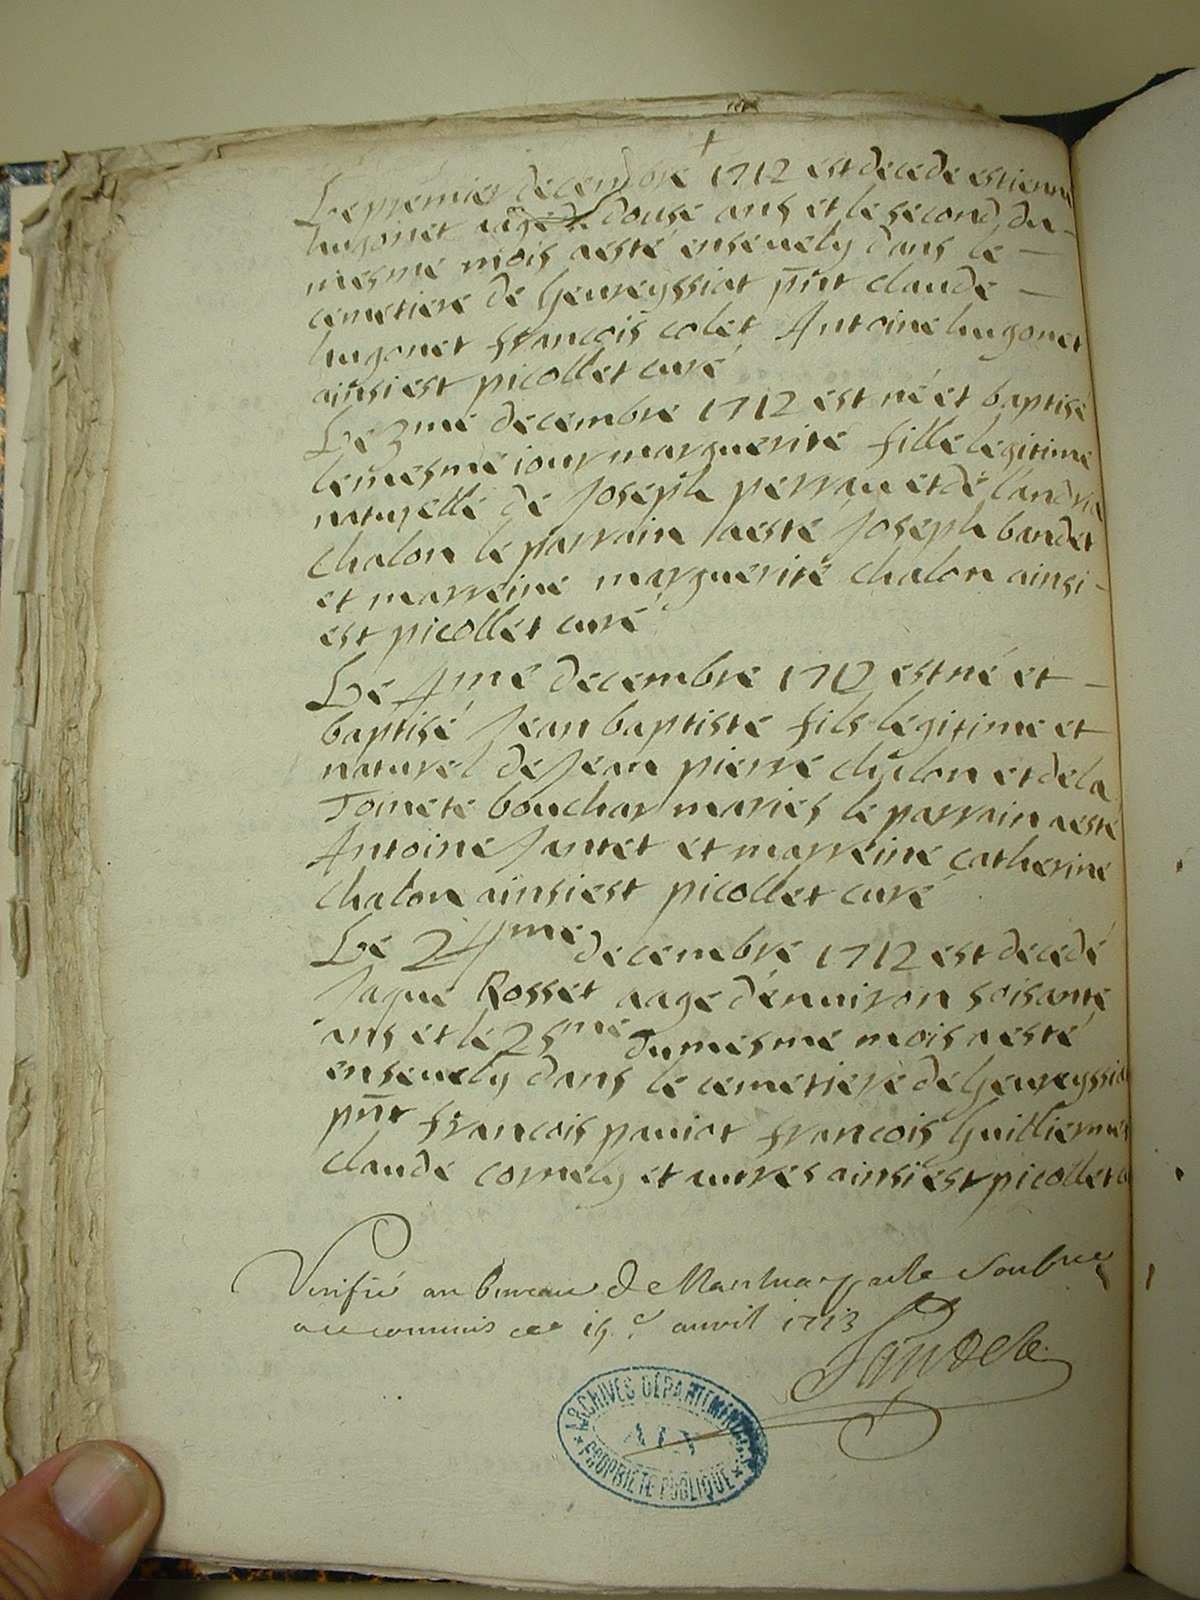 Le premier decembre 1712 est decede estienne
hugonet aagé de douse ans et le second du
mesme mois aesté enseuely dans le
cemetiere de Geureyssiat pñt claude
hugonet françois colet Antoine hugonet
ainsi est picollet curé
Le 3me decembre 1712 est né et baptisé
le mesme iour marguerite fille legitime
naturelle de Joseph perrau et de
chalon le parrain aesté Joseph bandet
et marreine marguerite chalon ainsi
est picollet curé
Le 4me decembre 1712 est né et
baptisé Jean baptiste fils legitime et
naturel de Jean pierre chalon et de la
Toinete bouchar mariés le parrain aesté
Antoine Jantet et marreine catherine
chalon ainsi est picollet curé
Le 24me decembre 1712 est decedé
Jaque Rosset aagé d'enuiron soisante
ans et le 25me du mesme mois aesté
enseuely dans le cemetiere de Geureyssia
pñt françois pauiot françois Guilliermet
claude cornely et autres ainsi est picollet
Verifié au bureau de Nantua par le
commis ce auril 1713
ARCHIVES DÉPARTEMENTALES
AIN
PROPRIÉTÉ PUBLIQUE